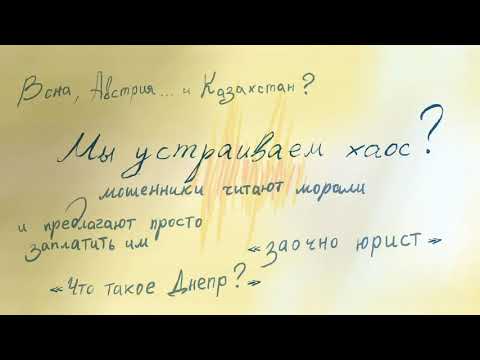 Вена, Австрия... и Казахстан?
Мы устраиваем хаос?
мошенники читают морали
и предлагают просто
заплатить им
«заочно юрист»
«Что такое Днепр?»